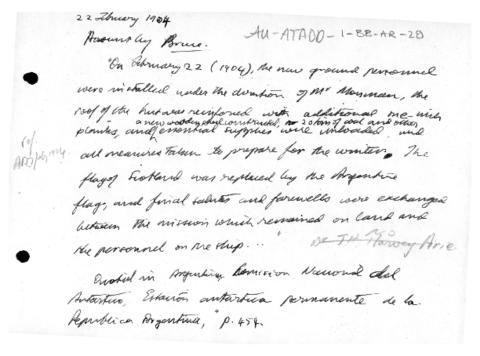 22 February 1904
AU-ATADD-1-BB-AR-28
Account by Bruce.
"On February 22 (1904), the new ground personnel
were installed under the direction of Mr Mossman, the
roof of the hut was reinforced with additional
a new was constructed, 2 tons of coal and other
planks, and essential supplies were unloaded and
all measures taken to prepare for the winter. The
flag of Scotland was replaced by the Argentine
flag, and final salutes and farewells were exchanged
between the mission which remained on land and
the personnel on the ship..."
Dr J H Harvey Pirie
Quoted in Argentina Comision Nacional del
Antartico, Estación antartica permanente de la
Republica Argentina," p. 454.